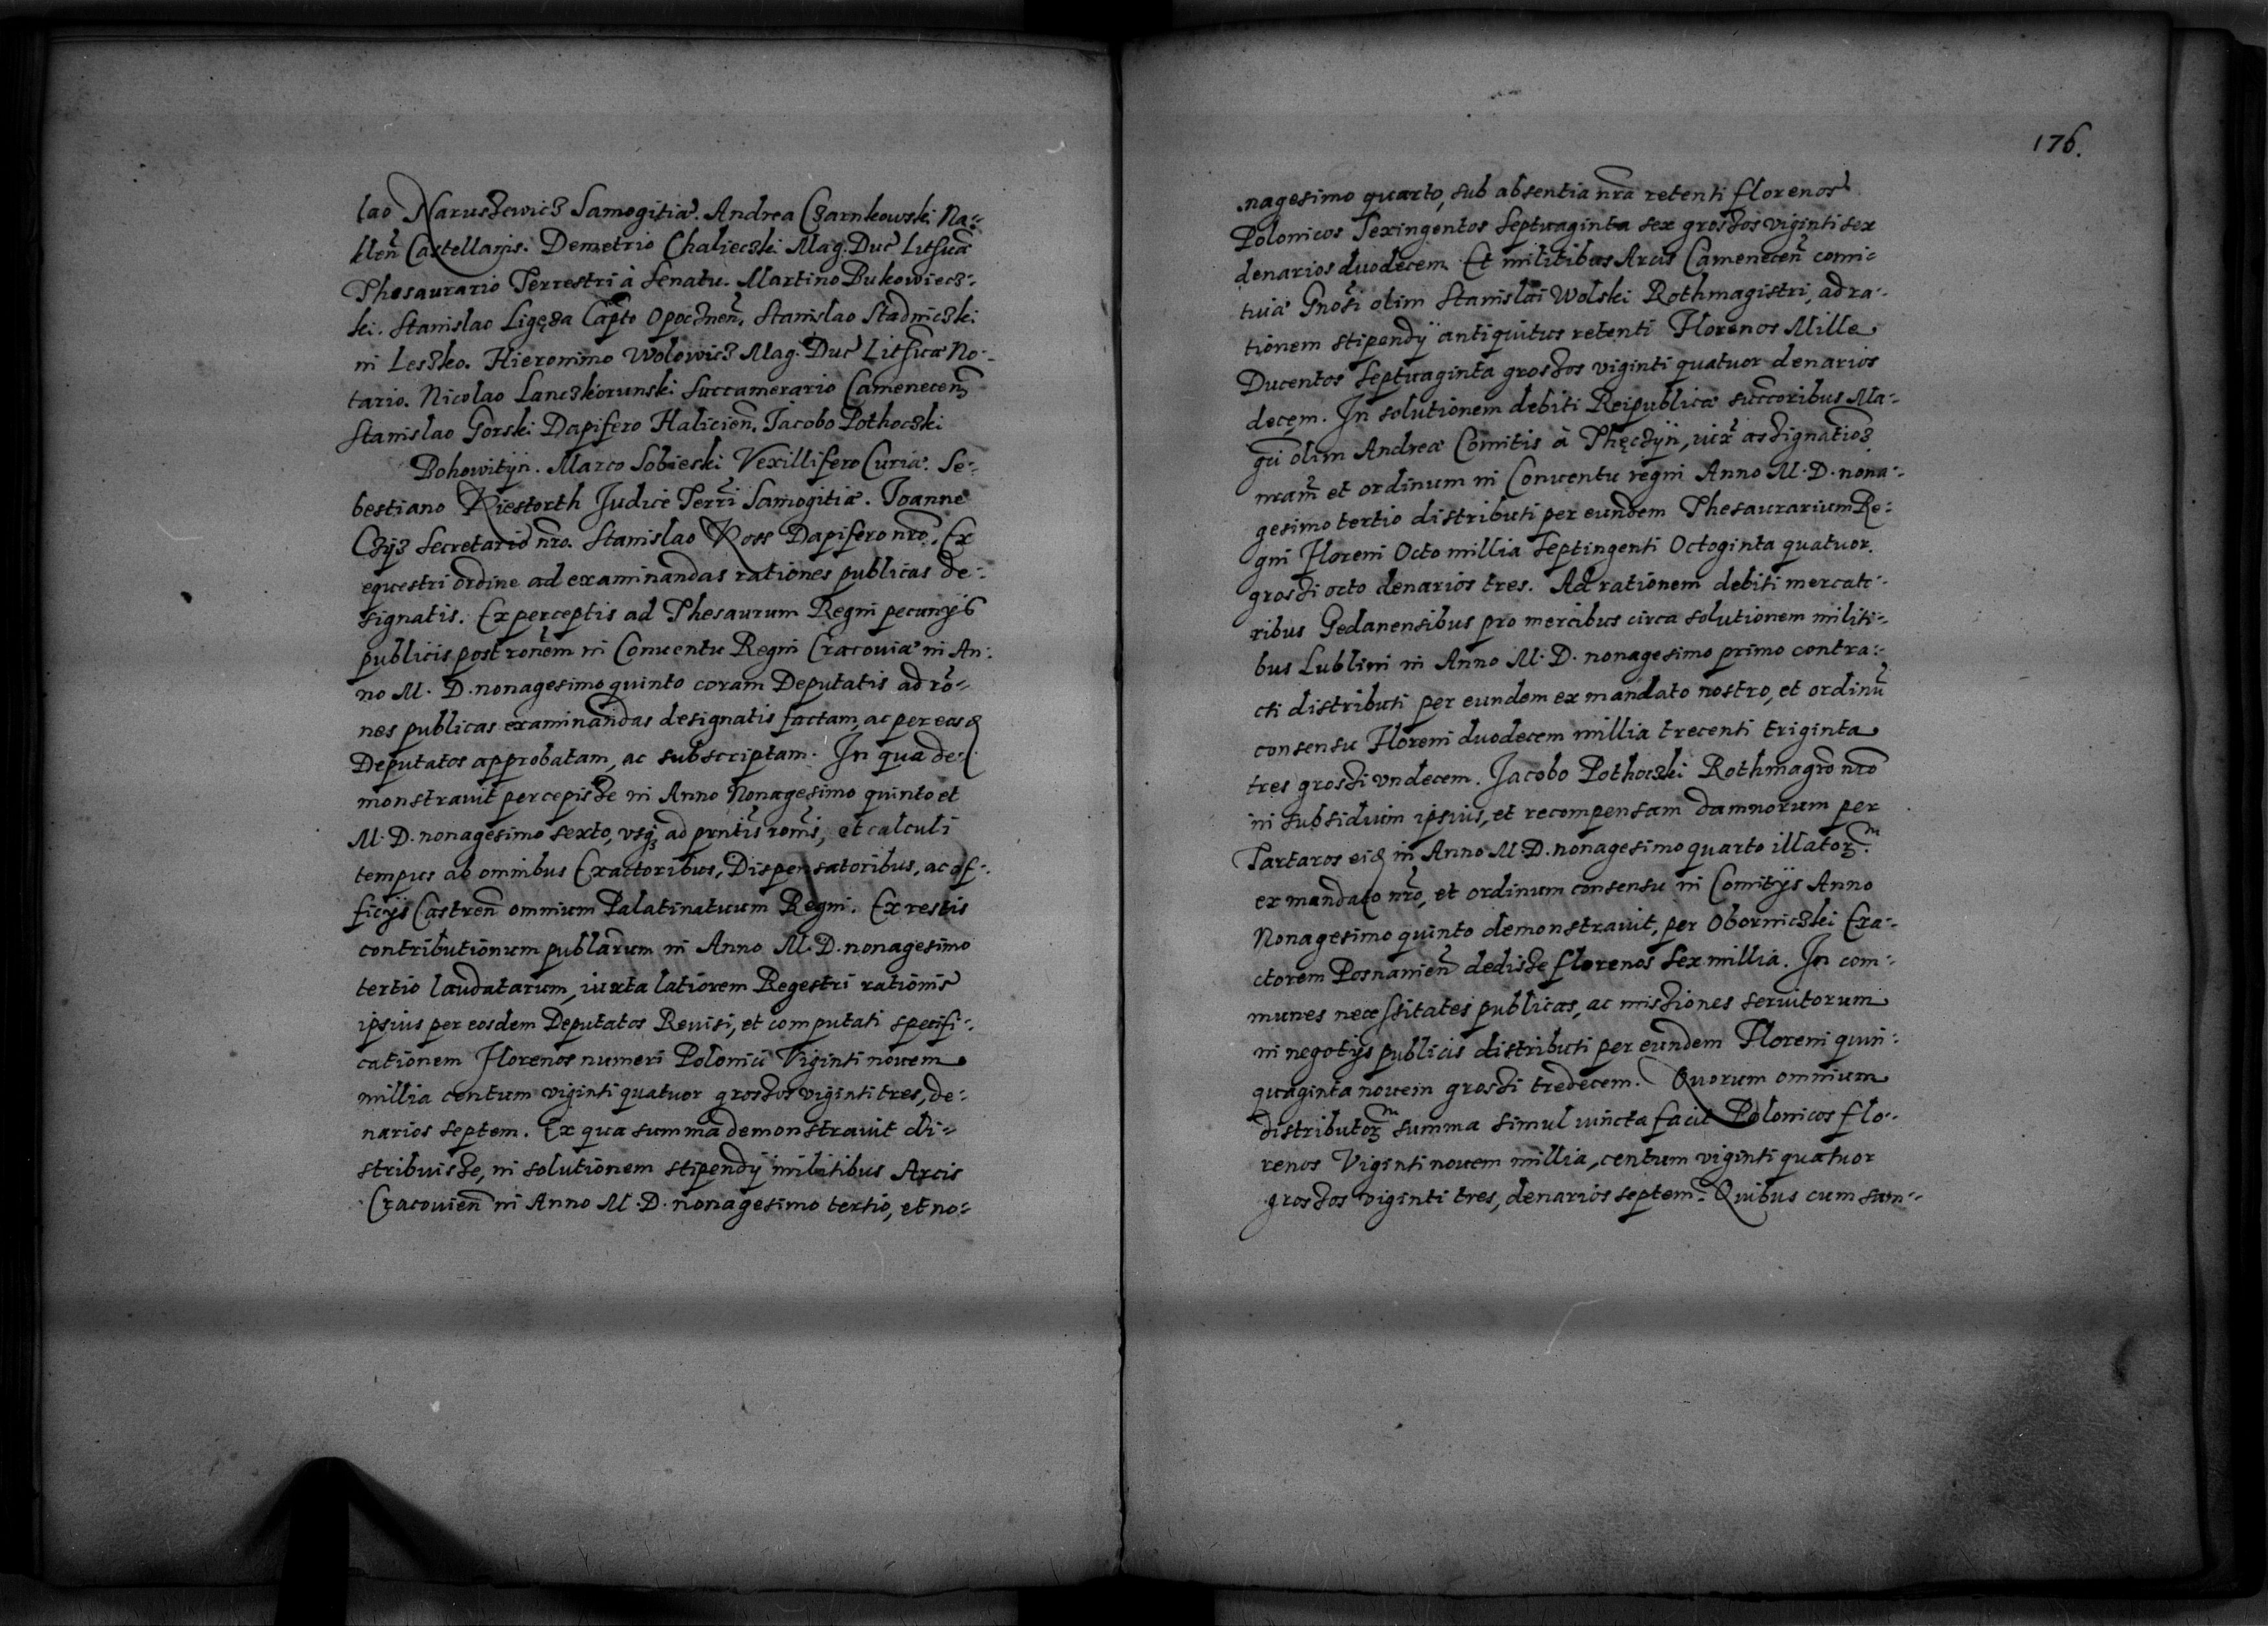 lao Naruszewicz Samogitiæ. Andrea Czarnkowski Na=
klen̄ Castellanis. Demetrio Chalieczki Mag. Duc Lithuæ
Thesaurario Terrestri à Senatu. Martino Bukowiecz=
ki. Stanislao Ligęza Capto Opocznen̄. Stanislao Stadniczki
in Leszko. Hieronimo Wolowicz Mag. Duc Lithuæ No=
tario. Nicolao Lanczkorunski Succamerario Camenecen̄
Stanislao Gorski Dapifero Halicien̄. Jacobo Pothoczki
Bohowityn. Marco Sobieski Vexillifero Curiæ. Se=
bestiano Kiestorth Judice Terrī Samogitiæ. Joanne
Czyz Secretario nrō. Stanislao Koss Dapifero nrō. Ex
equestri ordine ad examinandas rationes publicas de=
signatis. Ex perceptis ad Thesaurum Regni pecunijs
publicis post ronēm in Conuentu Regni Cracouiæ in An=
no M. D. nonagesimo quinto coram Deputatis ad rō=
nes publicas examinandas designatis factam, ac per eosd
Deputatos approbatam, ac subscriptam. In qua de=
monstrauit percepisse in Anno Nonagesimo quinto et
M. D. nonagesimo sexto, vsq ad prntīs romīs, et calculi
tempus ab omnibus Exactoribus, Dispensatoribus, ac of=
ficijs Castren̄ omnium Palatinatuum Regni. Ex restis
contributionum publārum in Anno M. D. nonagesimo
tertio laudatarum, iuxta latiorem Regestri rationis
ipsius per eosdem Deputatos Reuisi, et computati specifi=
cationem Florenos numeri Polonici Viginti nouem
millia centum viginti quatuor grossos viginti tres, de=
narios septem. Ex qua summa demonstrauit di=
stribuisse, in solutionem stipendÿ militibus Arcis
Cracouien̄ in Anno M. D. nonagesimo tertio, et no=
176.
nagesimo quarto, sub absentia nrā retenti florenos
Polonicos Sexingentos Septuaginta sex grossos viginti sex
denarios duodecem. Et militibus Arcis Camenecen̄ comi=
tiuæ Gnosī olim Stanislai Wolski Rothmagistri, ad ra=
tionem stipendÿ antiquitus retenti Florenos Mille
Ducentos Septuaginta grossos viginti quatuor denarios
decem. In solutionem debiti Reipublicæ succoribus Ma=
gci olim Andreæ Comitis à Thęczyn, iux assignatioз
nram̄ et ordinum in Conuentu regni Anno M. D. nona=
gesimo tertio distributi per eundem Thesaurarium Re=
gni Floreni Octo millia Septingenti Octoginta quatuor.
grossi octo denarios tres. Ad rationem debiti mercato=
ribus Gedanensibus pro mercibus circa solutionem militi=
bus Lublini in Anno M. D. nonagesimo primo contra=
cti distributi per eundem ex mandato nostro, et ordinū
consensu Floreni duodecem millia trecenti triginta
tres grossi vndecem. Jacobo Pothoczki Rothmagrō nrō
in subsidium ipsius, et recompensam damnorum per
Tartaros eid in Anno M. D. nonagesimo quarto illatorꝫ.
ex mandato nrō, et ordinum consensu in Comitÿs Anno
Nonagesimo quinto demonstrauit, per Oborniczki Exa=
ctorem Posnanien̄ dedisse florenos Sex millia. In com=
munes necessitates publicas, ac missiones seruitorum
in negotÿs publicis distributi per eundem Floreni quin=
quaginta nouem grossi tredecem. Quorum omnium
distributorꝫ summa simul iuncta facit Polonicos flo=
renos Viginti nouem millia, centum viginti quatuor
grossos viginti tres, denarios septem. Quibus cum sum=